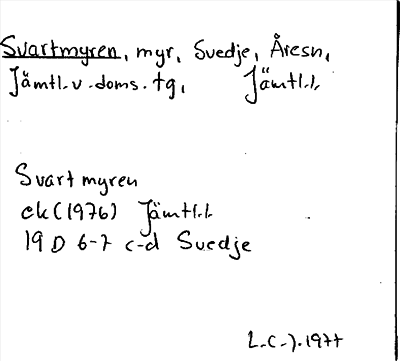 Svartmyren, myr, Svedje, Åresn,
Jämtl.v.doms.tg, Jämtl.l.
Svartmyren
ek (1976) Jämtl.l.
19 D 6-7 c-d Svedje
L-C-J.1977